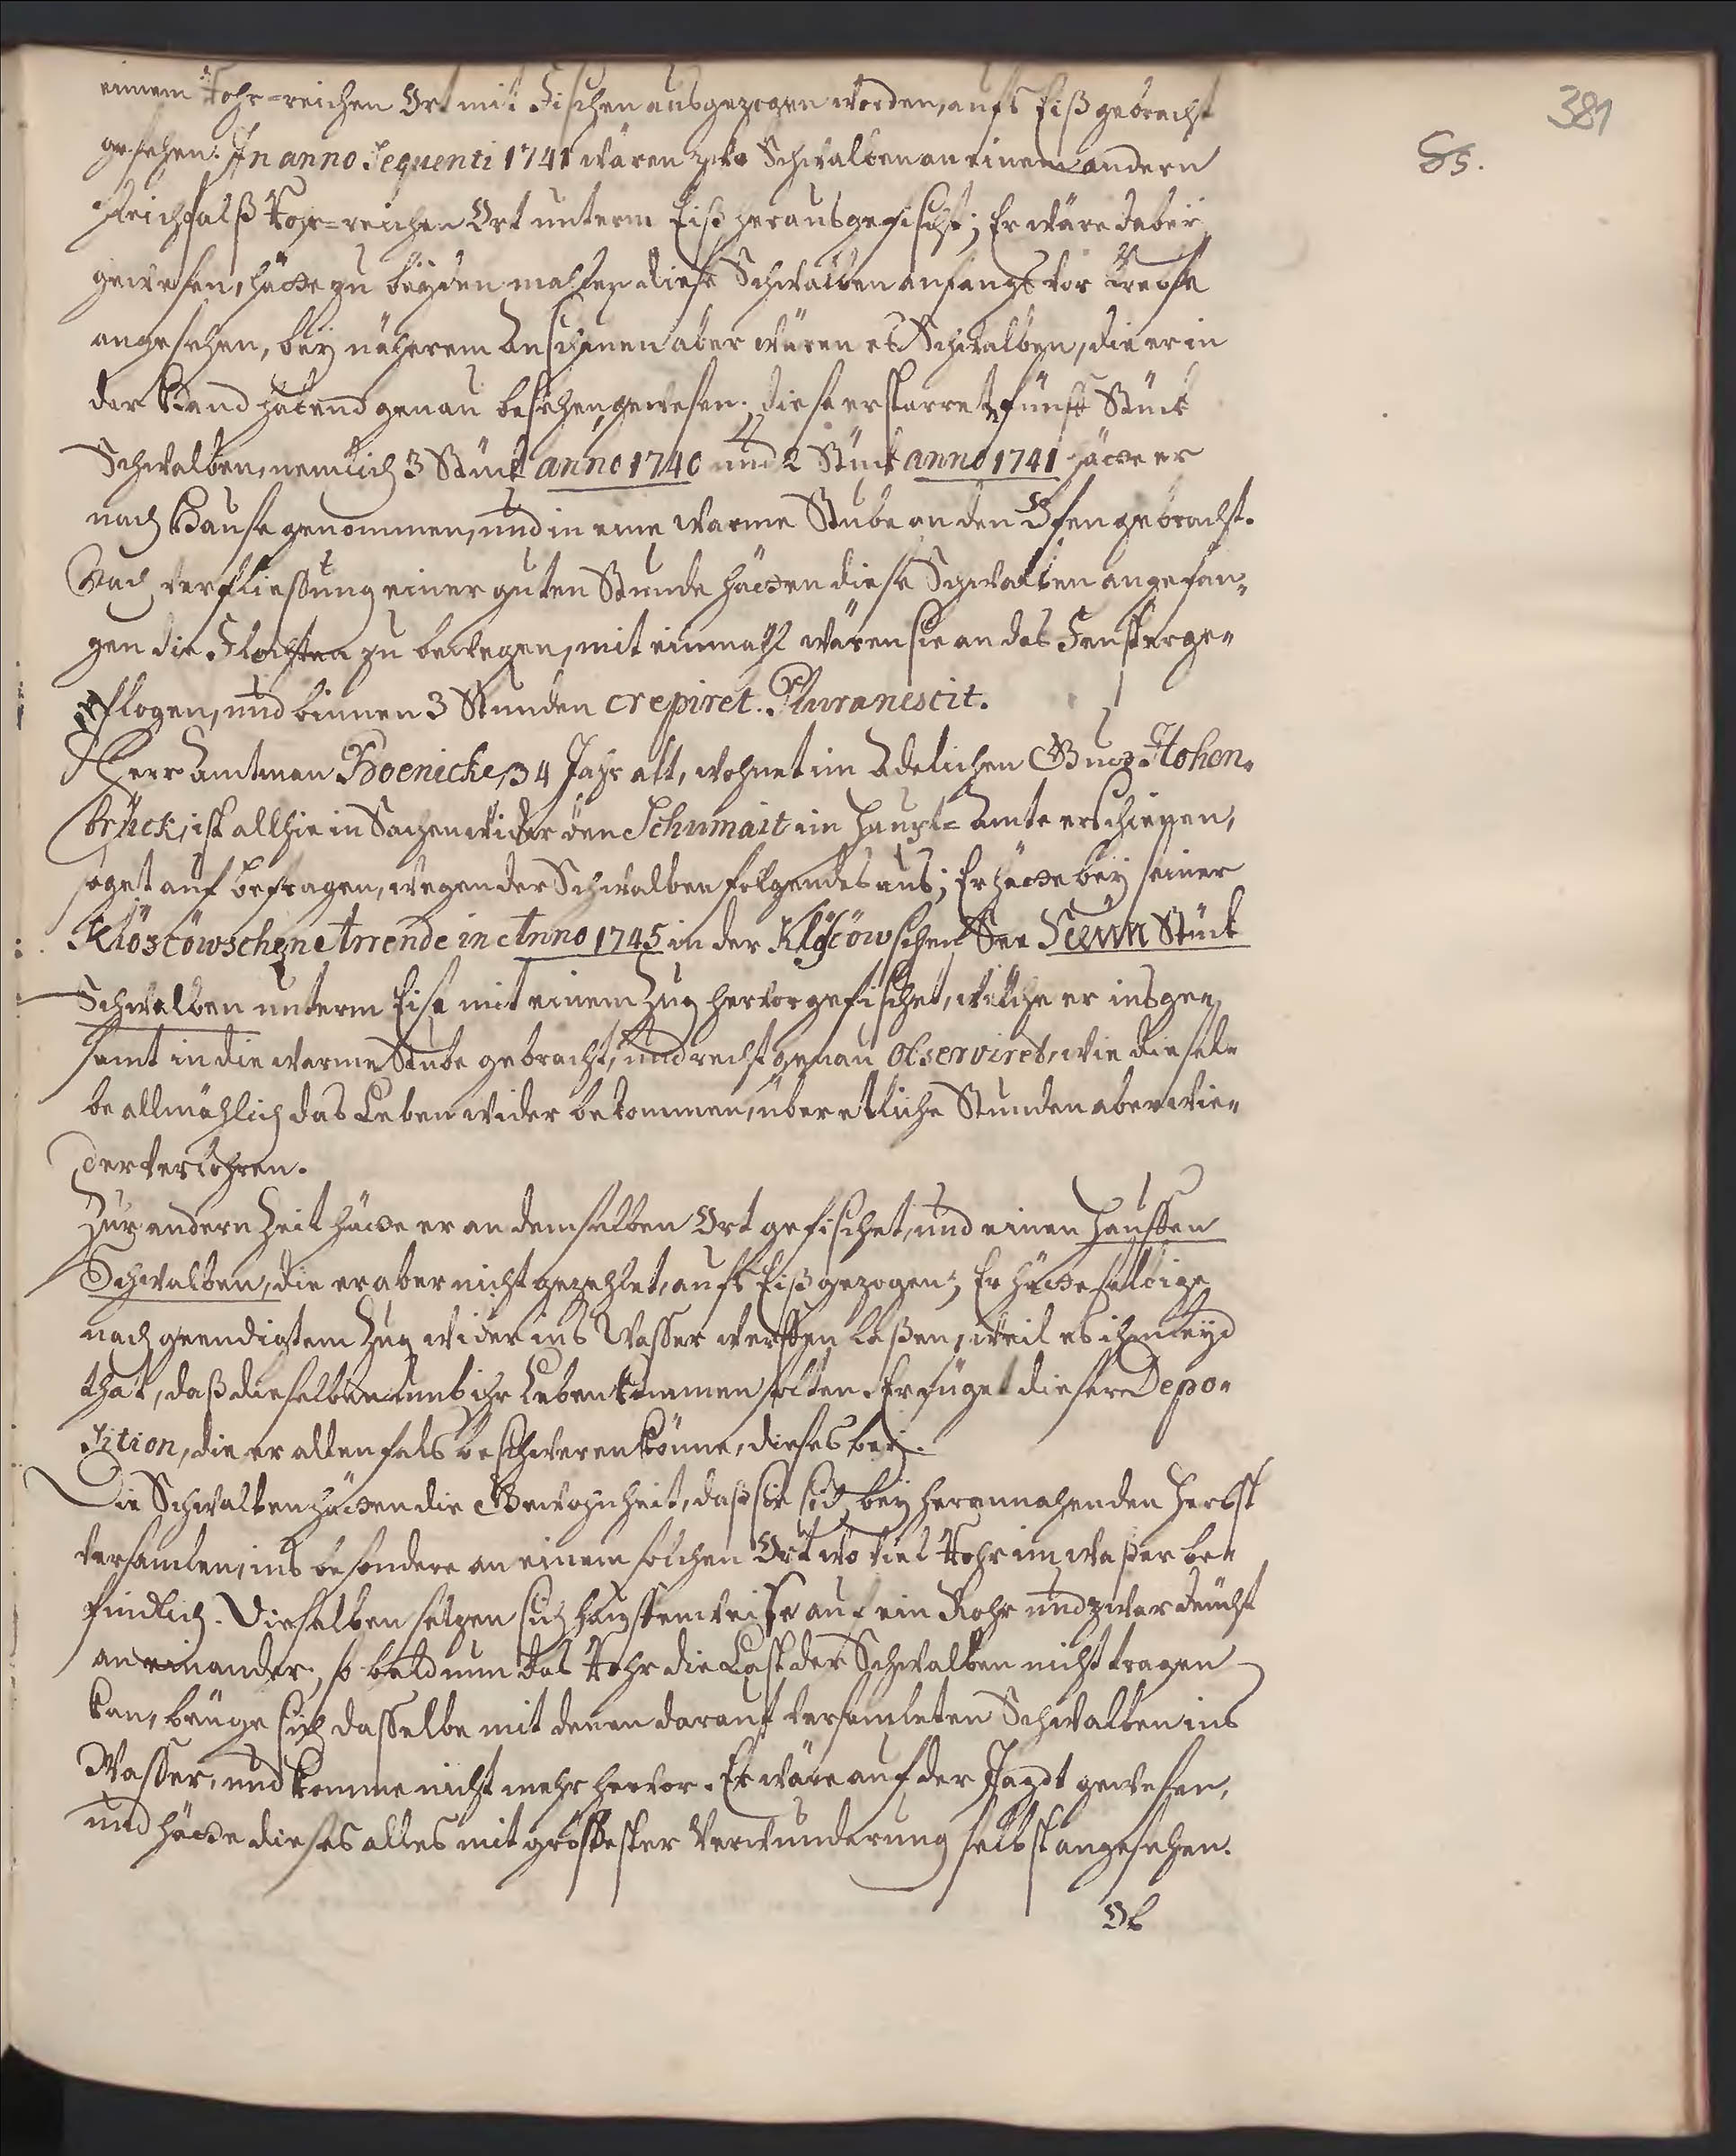 381
85.
einem Rohr=reichen Ort mit Fischen ausgezogen worden, aufs Eiß gebracht
gesehen. In anno Sequenti 1741 wären zwo Schwalben an einem andern
gleichfalß Rohr=reichen Ort unterm Eiß herausgefischt; Er wäre dabeÿ
gewesen, hätte zu beÿden mahlen diese Schwalben anfangs vor Krebse
angesehen, beÿ näherem Anschauen aber wären es Schwalben, die er in
der Hand habend genau besehen, gewesen. Diese erstarrete fünff Stück
Schwalben, nemlich 3 Stück anno 1740 und 2 Stück anno 1741 hätte er
nach Hause genommen, und in eine warme Stube an den Ofen gebracht.
Nach verfliessung einer guten Stunde hätten diese Schwalben angefan=
gen die Flochten zu bewegen, mit einmahl wären sie an das Fenster ge=
flogen, und binnen 3 Stunden crepiret. Plura nescit.
Herr Amtman Boenicke, 34 Jahr alt, wohnet im Adelichen Guth Hohen=
brück, ist allhie in Sachen wider den Schumait im Haupt=Amte erschienen,
saget auf befragen, wegen der Schwalben folgendes aus; Er hätte beÿ seiner
Klöscöwschen Arrende in Anno 1745 in der Klöscöwschen See Neun Stück
Schwalben unterm Eise mit einem Zug hervorgefischet, welche er insge=
samt in die warme Stube gebracht, und recht genau observiret, wie diesel=
be allmählich das Leben wider bekommen, über etliche Stunden aber wie=
der verlohren.
Zur andern Zeit hätte er an demselben Ort gefischet, und einen Hauffen
Schwalben, die er aber nicht gezehlet, aufs Eiß gezogen; Er hätte selbige
nach geendigtem Zug wider ins Wasser werffen laßen, weil es ihm leÿd
that, daß dieselben umb ihr Leben kommen solten. Er füget dieser Depo=
sition, die er allenfals beschweren könne, dieses beÿ.
Die Schwalben hätten die Gewohnheit, daß sie sich beÿ herannahenden Herbst
versamlen, ins besondere an einem solchen Ort wo viel Rohr im waßer be=
findlich. Dieselben setzen sich hauffenweise auf ein Rohr und zwar deücht
an einander, so bald nun das Rohr die Last der Schwalben nicht tragen
kan, beuge sich dasselbe mit denen darauf versamleten Schwalben ins
Wasser, und komme nicht mehr hervor. Er wäre auf der Jagdt gewesen,
und hätte dieses alles mit grössester Verwunderung selbst angesehen.
Ob